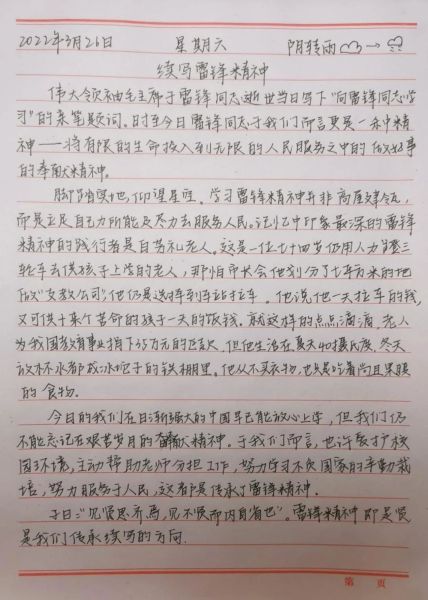 2022年3月26日 星期六 阴转雨 →
续写雷锋精神
伟大领袖毛主席于雷锋同志逝世当日写下“向雷锋同志学
习”的亲笔题词。时至今日雷锋同志于我们而言更是一种精
神——将有限的生命投入到无限的人民服务之中的做好事
的奉献精神。
脚踏实地,仰望星空。学习雷锋精神并非高屋建瓴,
而是立足自己力所能及尽力去服务人民。记忆中印象最深的雷锋
精神的践行者是白芳礼老人。这是一位七十四岁仍用人力登三
轮车去供孩子上学的老人,那怕市长令他划分了七平方米的地
做“支教公司”,他仍是选择到车站拉车。他说他一天拉车的钱,
又可供十来个苦命的孩子一天的饭钱。就这样的点点滴滴,老人
为我国教育事业捐下35万元的巨款,但他生活在夏天40摄氏度,冬天
放杯水都成冰坨子的铁棚里。他从不买衣物,也只是吃着尚且果腹
的食物。
今日的我们在日渐强大的中国早已能放心上学,但我们仍
不能忘记在艰苦岁月的奋献精神。于我们而言,也许打扫校
园环境,主动帮助老师分担工作,努力学习不负国家的辛勤栽
培,努力服务于人民,这都是传承了雷锋精神.
子曰:“见贤思齐焉,见不贤而内自省也”。雷锋精神即是贤
是我们传承续写的方向.
第 页